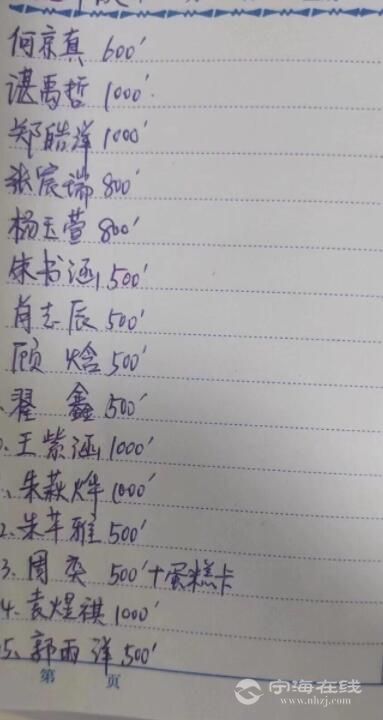 何京真 600'
谌禹哲 1000'
郑皓洋 1000'
张宸瑞 800'
杨玉萱 800'
朱书涵 500'
肖志辰 500'
顾焓 500'
翟鑫 500'
0、王紫涵 1000'
1、朱菻烨 1000'
2、朱芊雅 500'
3、周奕 500'+蛋糕卡
4、袁煜祺 1000'
5、郭雨洋 500'
第 页
宁海在线
www.nhzj.com